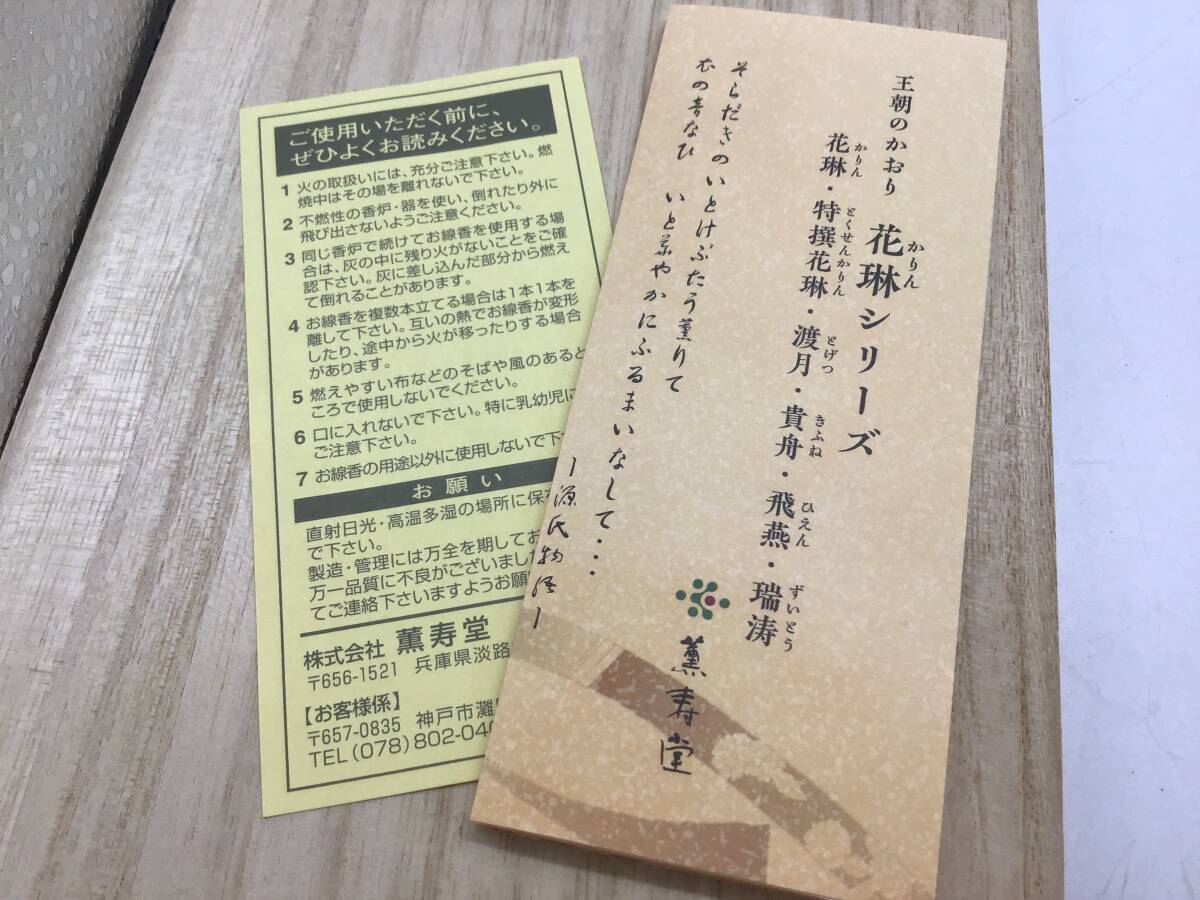 ご使用いただく前に、
ぜひよくお読みください。
1 火の取扱いには、充分ご注意下さい。燃
焼中はその場を離れないで下さい。
2 不燃性の香炉・器を使い、倒れたり外に
飛び出さないようご注意ください。
3 同じ香炉で続けてお線香を使用する場
合は、灰の中に残り火がないことをご確
認下さい。灰に差し込んだ部分から燃え
て倒れることがあります。
4 お線香を複数本立てる場合は1本1本を
離して下さい。互いの熱でお線香が変形
したり、途中から火が移ったりする場合
があります。
5 燃えやすい布などのそばや風のあると
ころで使用しないでください。
6 口に入れないで下さい。特に乳幼児に
ご注意下さい。
7 お線香の用途以外に使用しないで下
お願い
直射日光・高温多湿の場所に保
で下さい。
製造・管理には万全を期してお
万一品質に不良がございまし
てご連絡下さいますようお願
株式会社 薫寿堂
〒656-1521 兵庫県淡路
【お客様係】
〒657-0835 神戸市灘
TEL(078)802-04
王朝のかおり 花琳シリーズ
かりん
花琳・特撰花琳・渡月・貴舟・飛燕・瑞涛
かりん とくせんかりん とげつ きふね ひえん ずいとう
そらだきのいとけぶたう薫りて
衣の音なひ いと華やかにふるまいなして・・・
ー源氏物語ー
薫寿堂